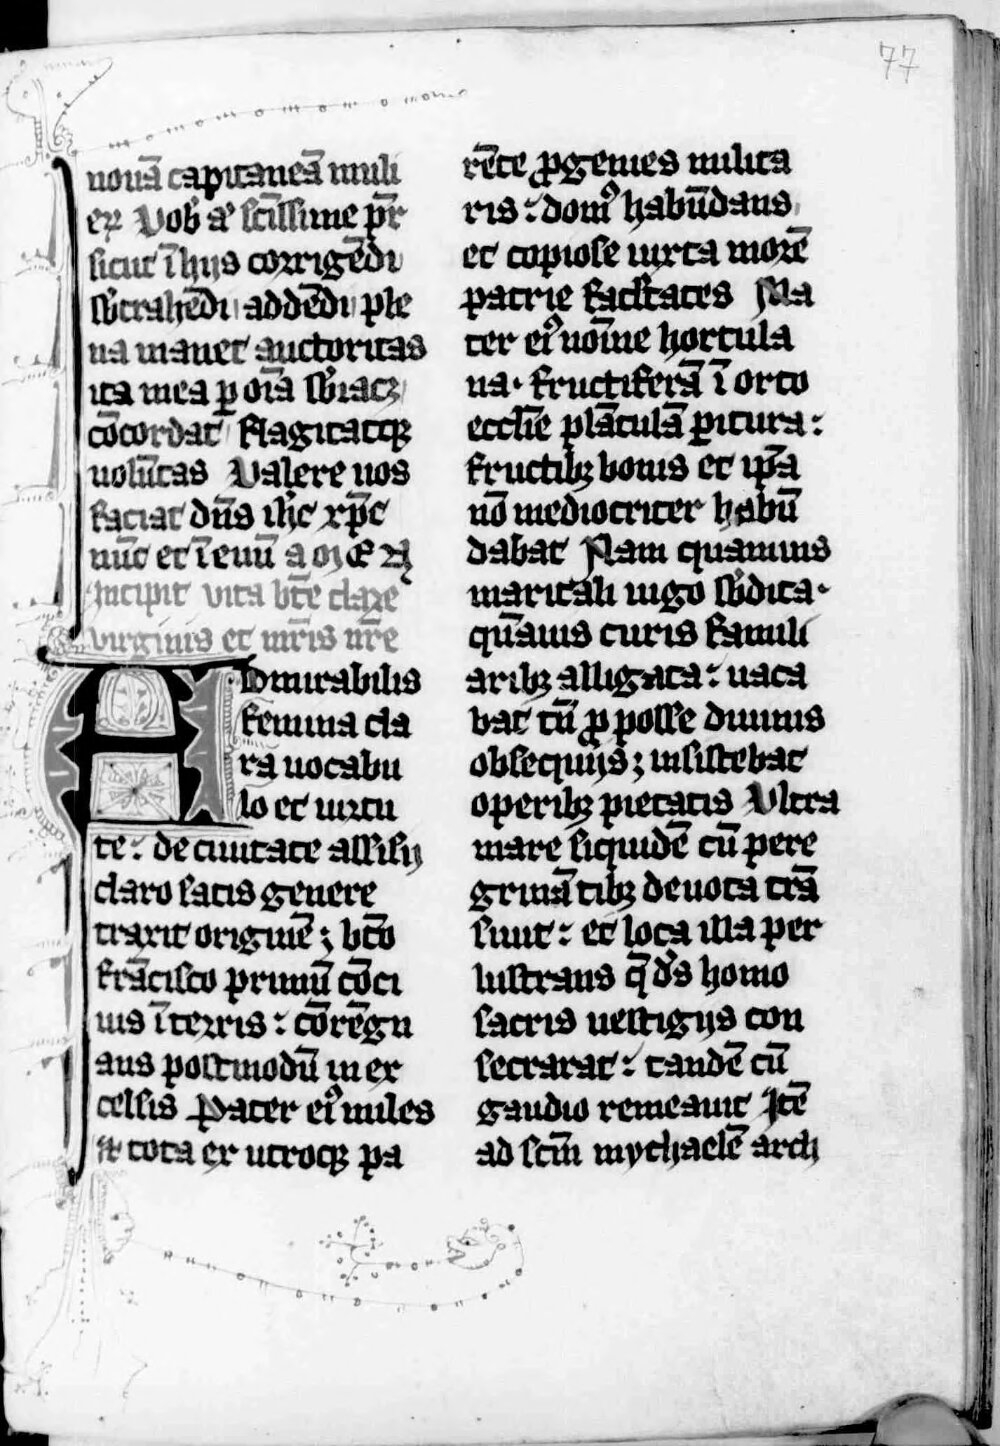 77
nouā capitaneā muli
er Vob᷒ aͤ sc̄issime pr̄
sicut ī hijs corrigēdi
sb̄trahēdi addēdi ple
na manet auctoritas
ita mea ꝑ oīa sb̄iacꝫ
cōcordat flagitatqꝫ
volūtas Valere uos
faciat dn̄s ih̄c xp̄c
nūc et ī euū
Incipit vita bt̄e clare
virginis et mr̄is nr̄e
Admirabilis
femina cla
ra uocabu
lo et uirtu
te : de ciuitate assisij
claro satis genere
traxit originē ; bt̄o
frācisco primū cōci
uis ī terris : cōregn
ans postmodū in ex
celsis Pater eiꝰ miles
et tota ex utroqꝫ pa
rēte ꝓgenies milita
ris : domꝰ habūdans
et copiose iuxta morē
patrie facl̄tates Ma
ter eiꝰ noīe hortula
na · fructiferā ī orto
eccl̄ie plātulā pitura :
fructibꝫ bonis et ip̄a
nō mediocriter habū
dabat Nam quamuis
maritali iugo sb̄dita ·
qūauis curis famili
aribꝫ alligata : uaca
bat tn̄ ꝓ posse diuinis
obsequijs ; insistebat
operibꝫ pietatis Ultra
mare siquidē cū pere
grinātibꝫ deuota trā
siuit : et loca illa per
lustrans q̄ ds̄ homo
sacris uestigijs con
secrarat : tandē cū
gaudio remeauit Itē
ad scm̄ mychaelē arch